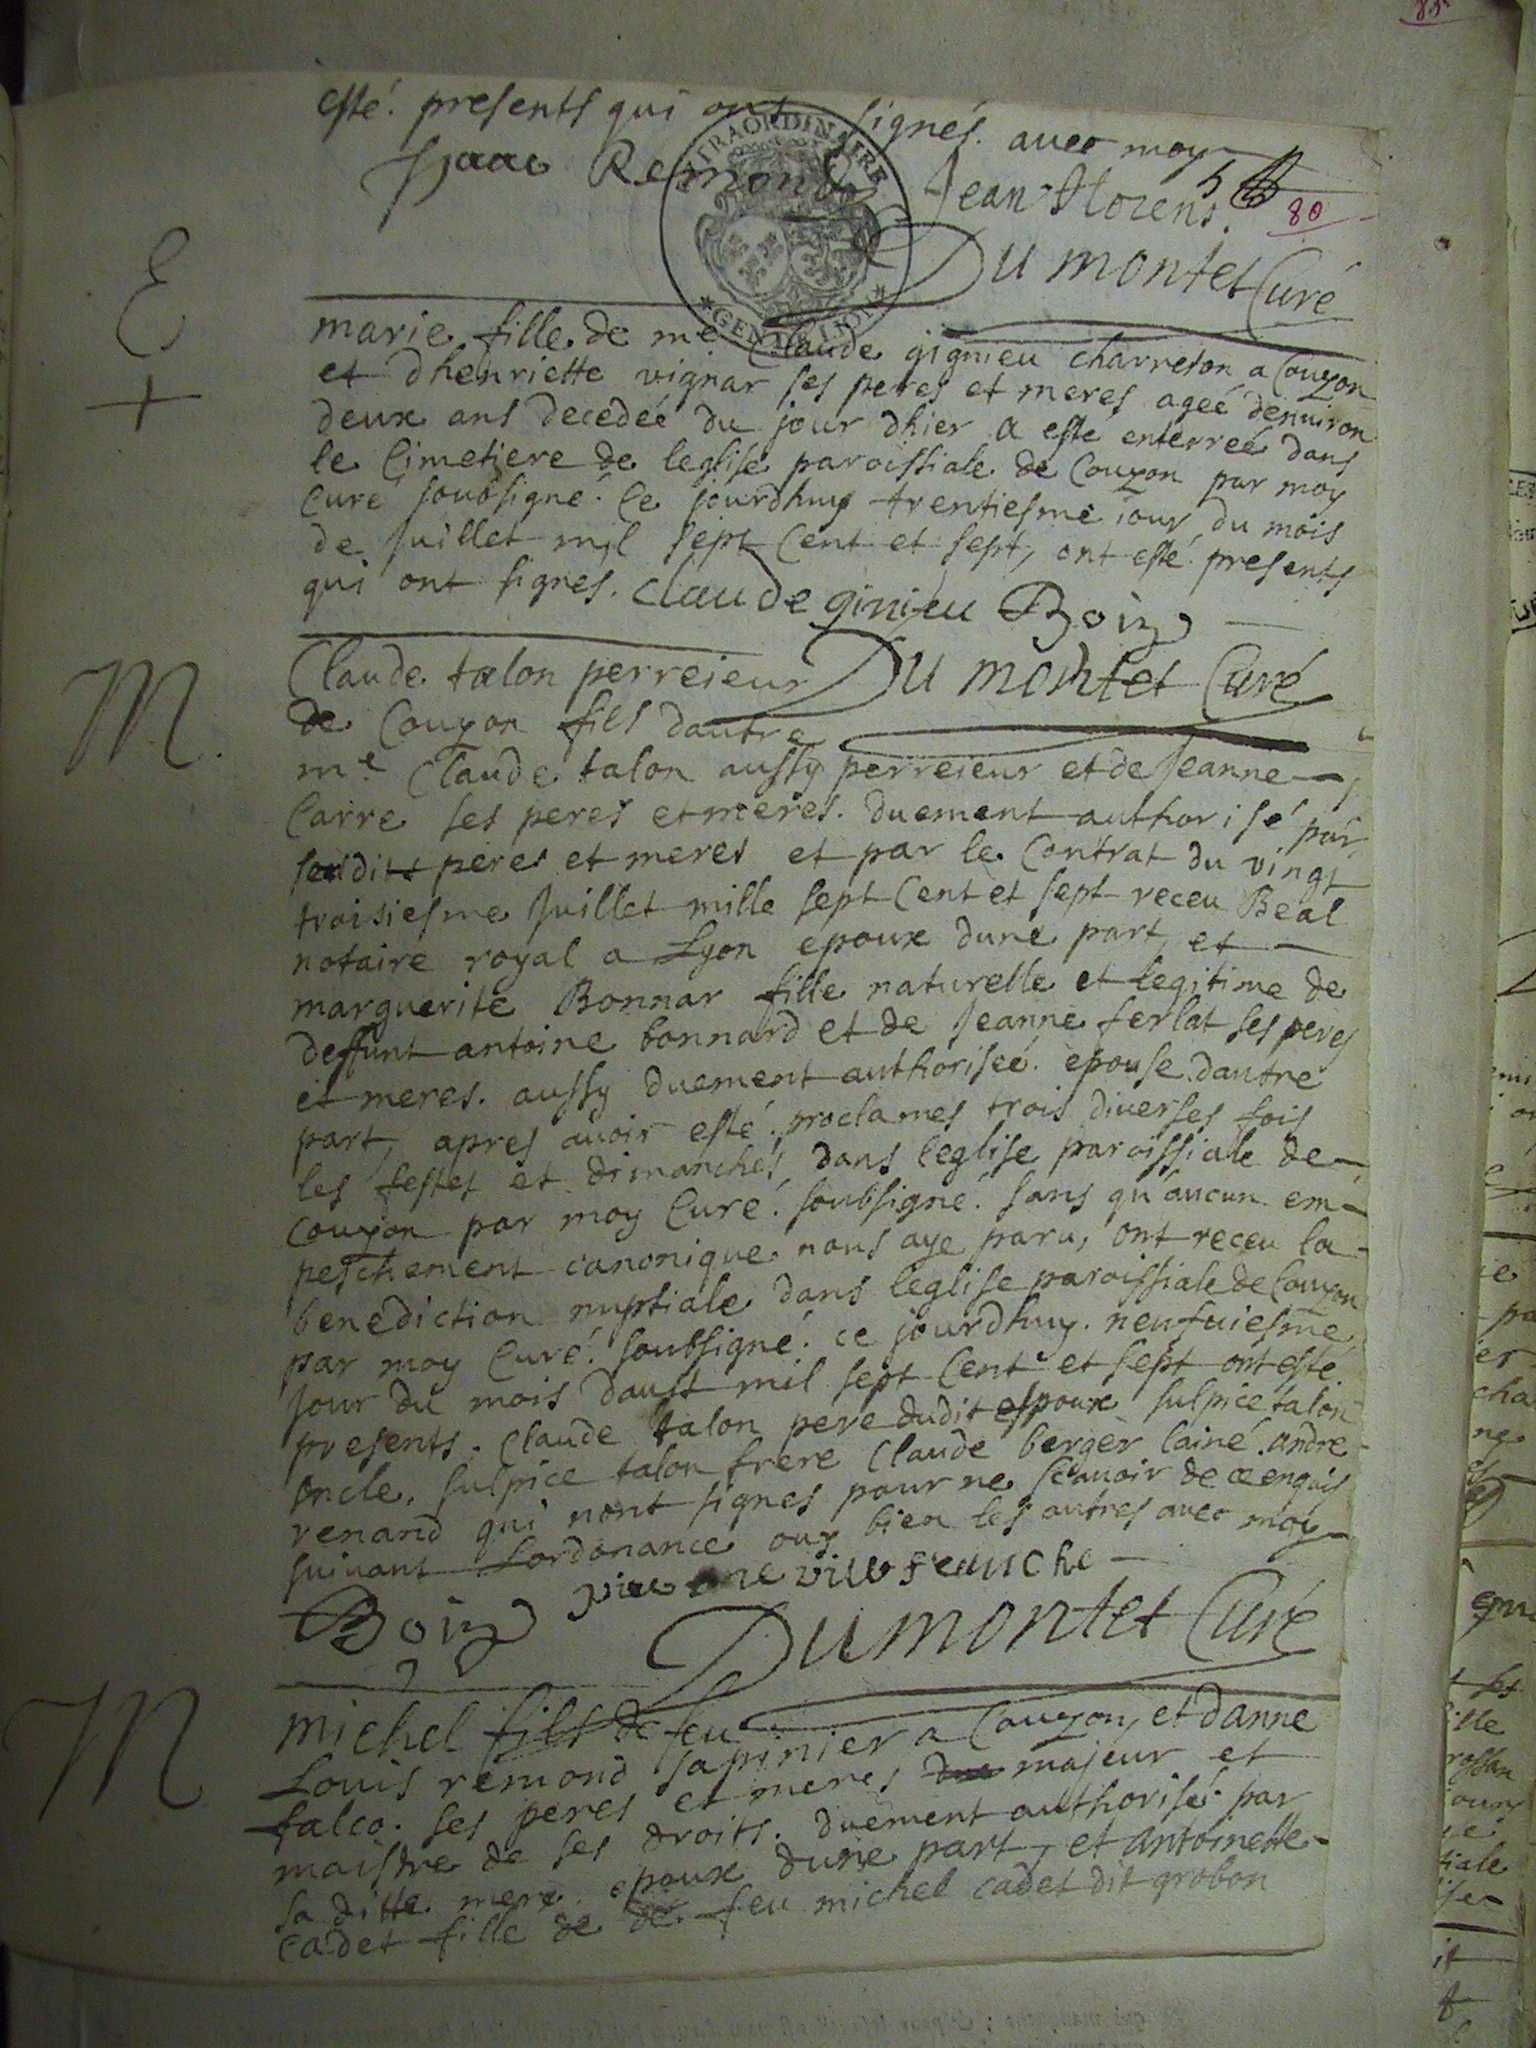 esté presents qui ont signés avec moy
Isaac Remond Jean Florens
80
Du montet Curé
E
marie fille de me Claude gignieu charreton a Couzon
et dhenriette vignar ses peres et meres ageé denuiron
deux ans decedeé du jour dhier a esté enterreé dans
le Cimetiere de leglise paroissiale de Couzon par moy
Curé soubsigné ce jourdhuy trentiesme iour du mois
de Juillet mil sept Cent et sept, ont esté presents
qui ont signes. Claude ginieu Boin
Du montet Curé
M
Claude talon perreieur
de Couzon fils dautre
me Claude talon aussy perreieur et de Jeanne
Carre ses peres et meres. duement authorisé par
sesdits peres et meres et par le Contrat du vingt
troisiesme Juillet mille sept Cent et sept receu Beal
notaire royal a Lyon epoux dune part, et
marguerite Bonnar fille naturelle et legitime de
deffunt antoine bonnard et de Jeanne ferlat ses peres
et meres. aussy duement authoriseé epouse dautre
part, apres auoir esté proclames trois diuerses fois
les festes et dimanches, dans leglise paroissiale de
couzon par moy Curé soubsigné. sans qu'aucun em-
peschement canonique nous aye paru, ont receu la
benediction nuptiale dans leglise paroissiale de Couzon
par moy Curé soubsigné ce jourdhuy neufuiesme
Jour du mois daust mil sept Cent et sept ont esté
presents. Claude talon pere dudit espoux sulpice talon
oncle, sulpice talon frere Claude berger lainé. andre
renand qui nont signes pour ne scauoir de ce enquis
suiuant Lordonance ouy bien les autres avec moy
villefranche
Boin Dumontet Curé
M
michel fils de feu
Louis remond sapinier a Couzon, et danne
falco. ses peres et meres majeur et
maistre de ses droits. duement authorisé par
sa ditte mere epoux dune part, et antoinette
cadet fille de de feu michel cadet dit grobon